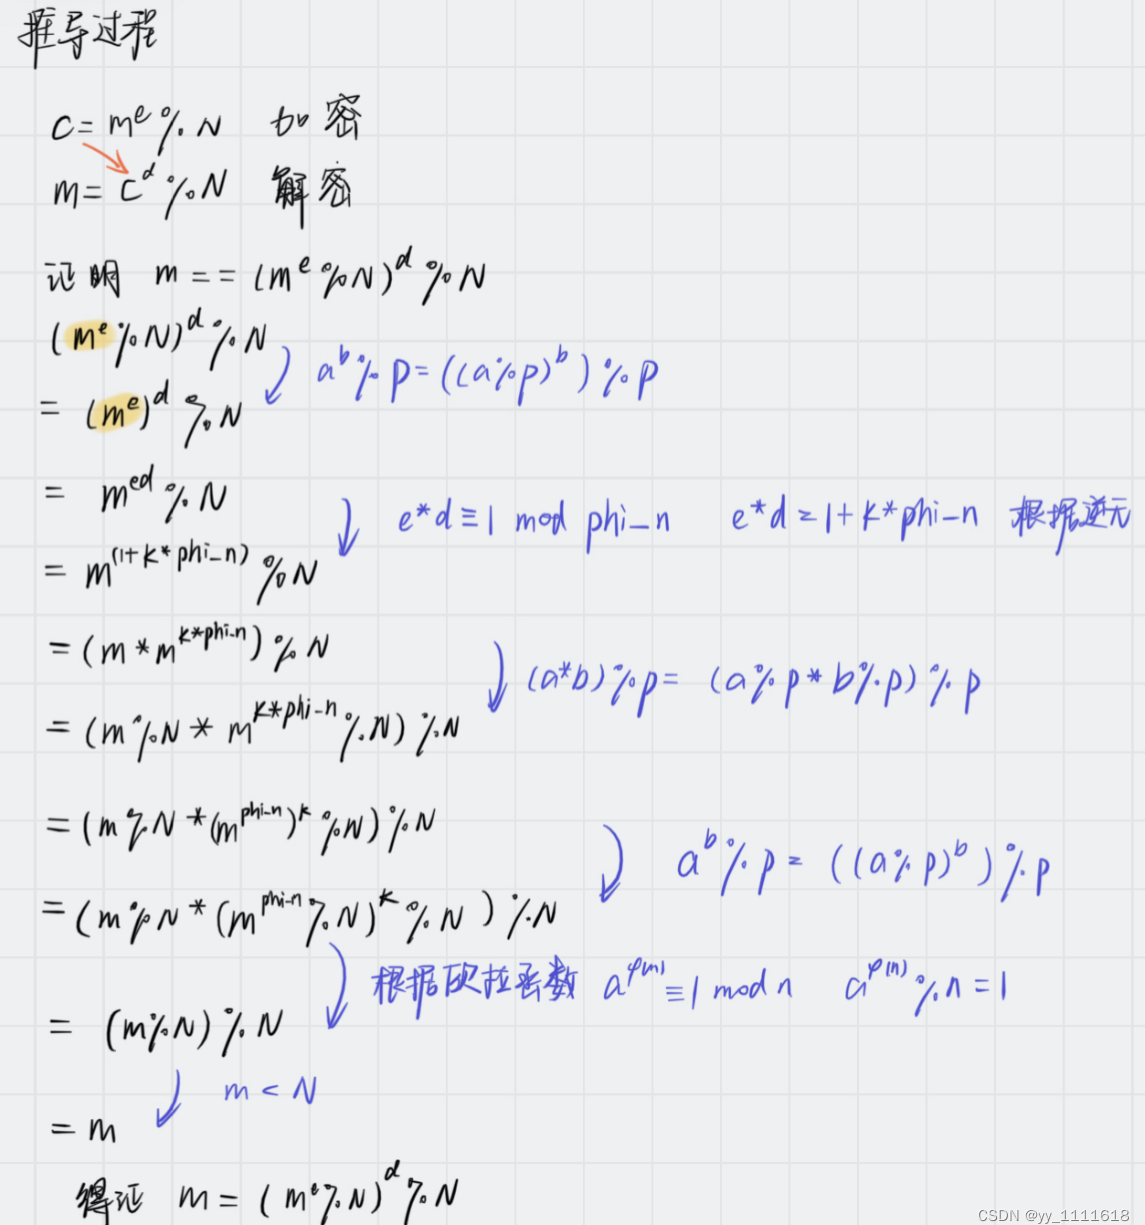 推导过程
c = m^e % N 加密
m = c^d % N 解密
证明 m == (m^e % N)^d % N
(m^e % N)^d % N
a^b % p = ((a % p)^b) % p
= (m^e)^d % N
= m^ed % N
e*d ≡ 1 mod phi-n e*d = 1+k*phi-n 根据逆元
= m^(1+k*phi-n) % N
= (m * m^k*phi-n) % N
(a*b) % p = (a % p * b % p) % p
= (m % N * m^k*phi-n % N) % N
= (m % N * (m^phi-n)^k % N) % N
a^b % p = ((a % p)^b) % p
= (m % N * (m^phi-n % N)^k % N) % N
根据欧拉函数 a^φ(n) ≡ 1 mod n a^φ(n) % n = 1
= (m % N) % N
m < N
= m
得证 m = (m^e % N)^d % N
CSDN @yy_1111618